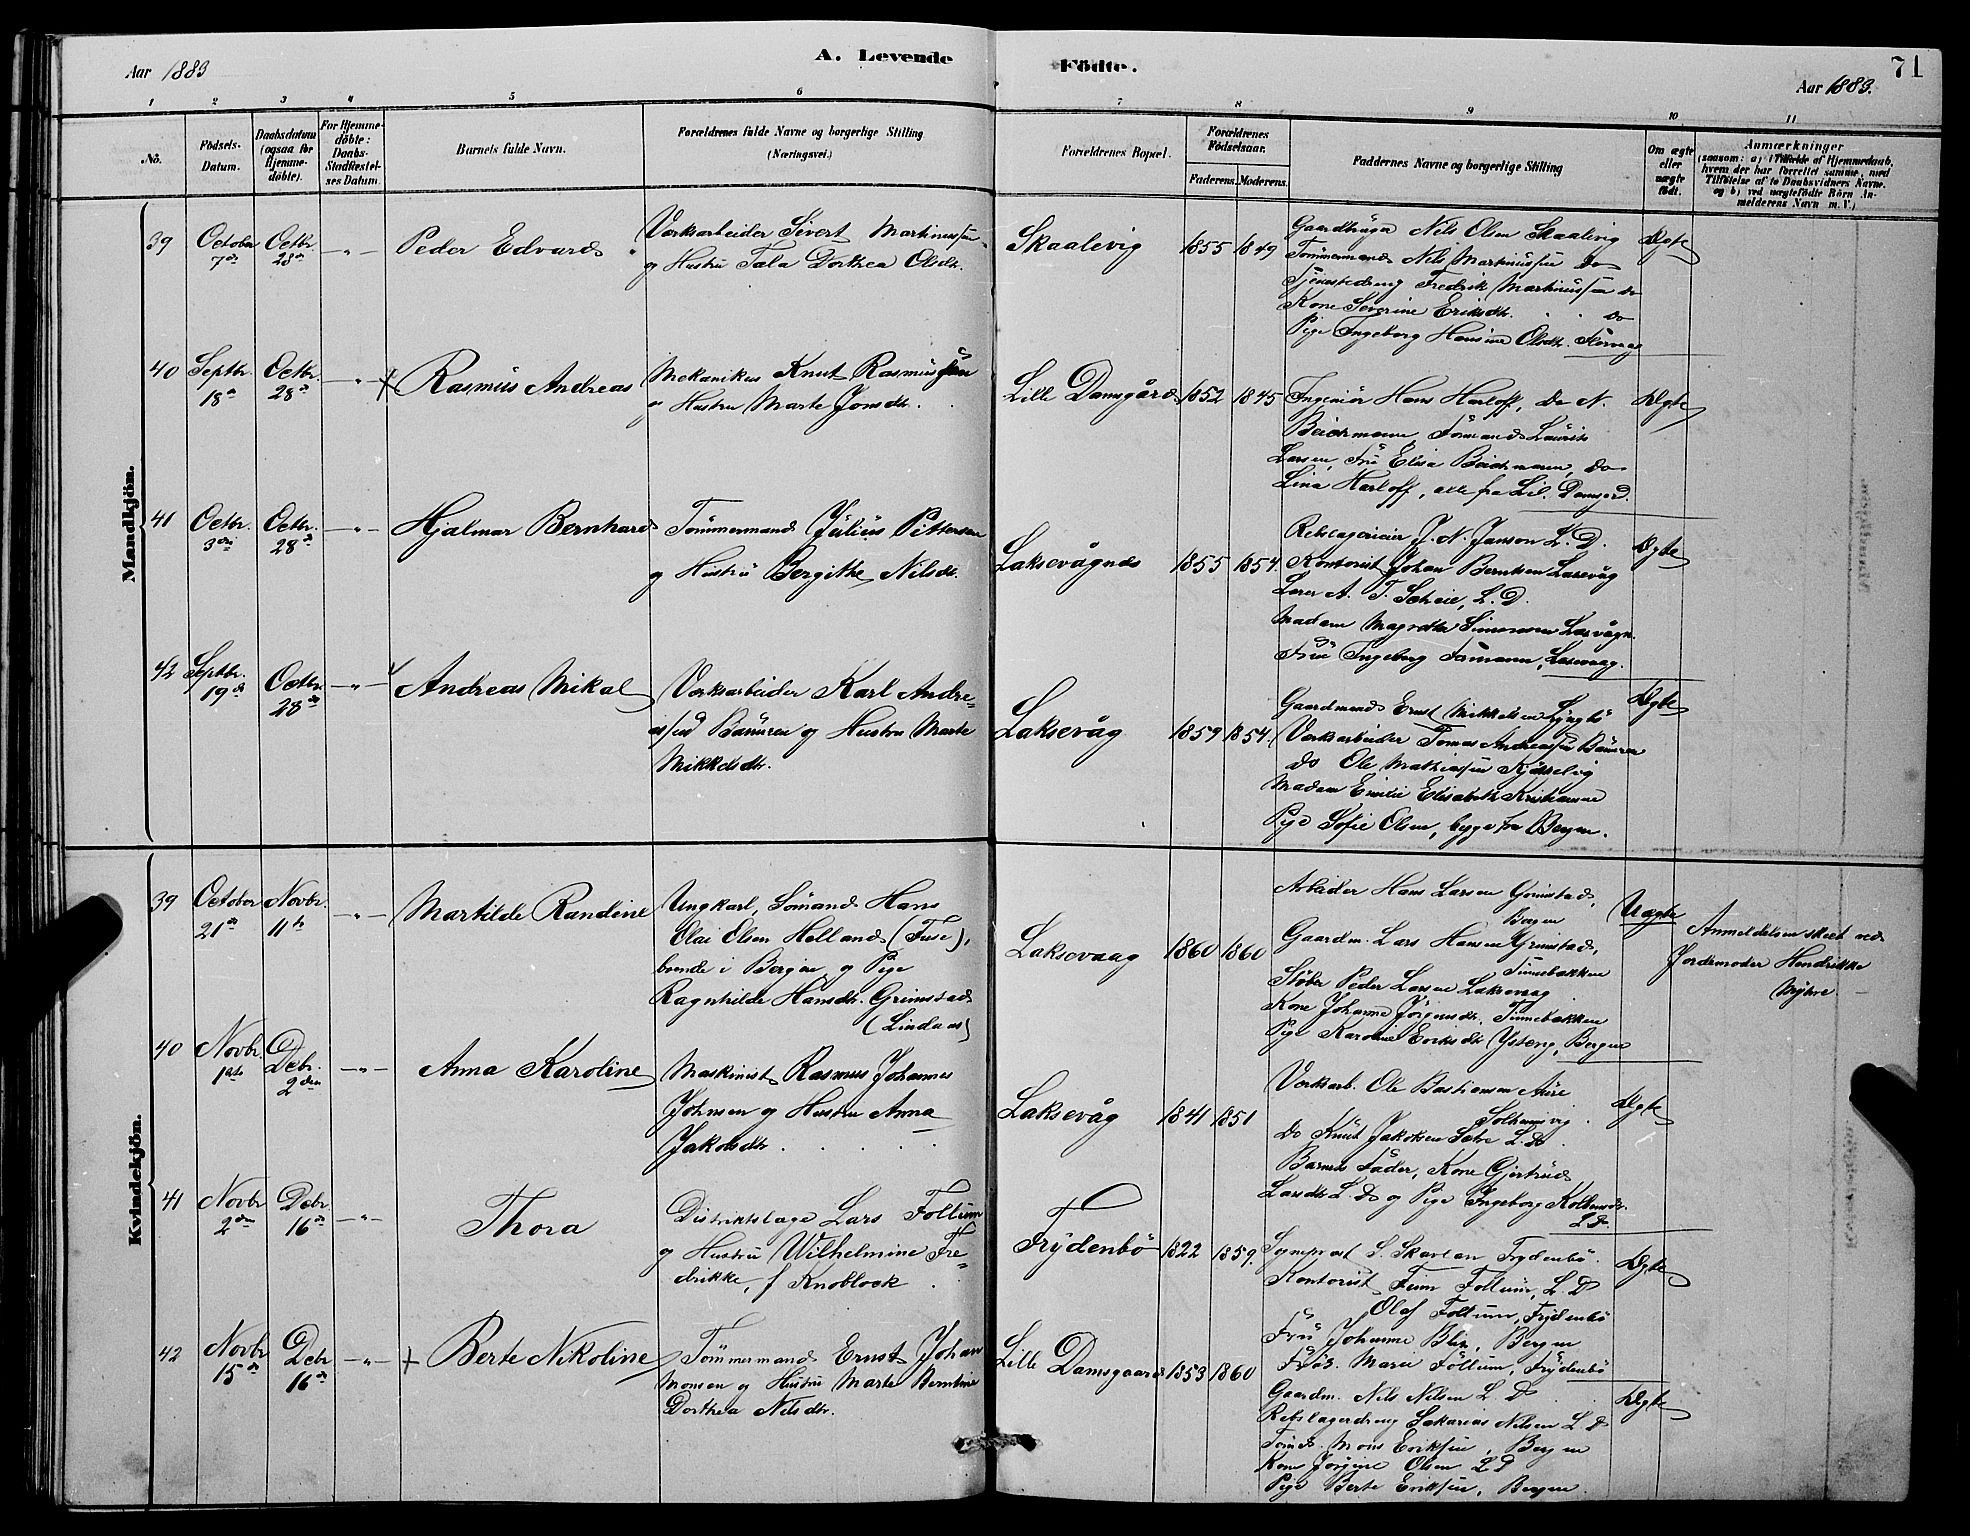 Aar 1883
A. Levende
Födte.
71
Aar 1883.
1
2
3
4
5
6
7
8
9
10
11
No.
Födsels-
Datum.
Daabsdatum
(ogsaa for
Hjemme-
döbte).
For Hjemme-
döbte:
Daabs-
Stadfæstel-
ses Datum.
Barnets fulde Navn.
Forældrenes fulde Navne og borgerlige Stilling
(Næringsvei.)
Forældrenes Bopæl.
Forældrenes
Födselsaar.
Faderens.
Moderens.
Faddernes Navne og borgerlige Stilling
Om ægte
eller
uægte
födt.
Anmærkninger
(saasom: a) i Tilfælde af Hjemmedaab,
hvem der har forrettet samme, med
Tilföielse af to Daabsvidners Navne.
og b) ved uægtefödte Börn An-
melderens Navn m. V.)
Mandkjön.
39
October
7de
Octbr.
28de
- " -
Peder Edvard
Værksarbeider Sivert Martinussen
og Hustru Tala Dorthea Olsdtr.
Skaalevig
1855
1849
Gaardbruger Nils Olsen Skaalevig
Tömmermand Nils Martinussen do
Tjenestedreng Fredrik Martinussen do
Kone Severine Eriksdtr. do
Pige Ingeborg Hansine Olsdtr.
Ægte
40
Septbr.
18de
Octbr.
28de
- " -
Rasmus Andreas
Mekanikus Knut Rasmussen
og Hustru Marte Jonsdtr.
Lille Damsgård
1852
1845
Ingeniör Hans Harloff, do N.
Beichmann, Formand Laurits
Larsen, Frü Elisa Beichmann, do
Lina Harloff, alle fra Lil. Damsgrd.
Ægte
41
Octbr.
3die
Octbr.
28de
- " -
Hjalmar Bernhard
Tömmermand Julius Pettersen
og Hustru Bergithe Nilsdtr.
Laksevågnds
1855
1854.
J. N. Janson L. D.
Kontorist Johan Berntsen Laxevåg
Lærer A. T. Scheie, L. D.
Madam Magrethe Simonsen Laxvågn.
Frü Ingeborg Formann, Laxevaag.
Ægte
42
Septbr.
19de
Octbr.
28de
- " -
Andreas Mikal
Værksarbeider Karl Andre-
assen og Hustru Marte
Mikkelsdtr.
Laksevåg
1859
1854.
Gaardmand Ernst Mikkelsen Lyngbö
Værksarbeider Tomas Andreassen
do Ole Mathiassen
Madam Emilie Elisabeth Kristianne
Pige Sofie Olsen, begge fra Bergen.
Ægte
Kvindekjön.
39
October
21de
Novbr.
11te
- " -
Martilde Randine
Ungkarl, Sömand Hans
Olai Olsen Helland (Fuse),
boende i Bergen og Pige
Ragnhilde Hansdtr. Grimstad
(Lindaas)
Laksevaag
1860
1860
Arbeider Hans Larsen Grimstad,
Bergen
Gaardm. Lars Hansen Grimstad,
Tinnebakken
Stöber Peder Larsen Laksevaag
Kone Johanne Jörgensdtr. Tinnebakken
Pige Karoline Eriksdtr Ysteng, Bergen
Uægte
Anmeldelsen skeet ved
Jordemoder Hendrikke
Myhre
40
Novbr.
1ste
Debr.
2den
- " -
Anna Karoline
Maskinist Rasmus Johannes
Johnsen og Hustru Anna
Jakobsdtr.
Laksevåg
1841
1851
Værksarb. Ole Bastiansen Aure
Solheimsvig.
do Knut Jakobsen Sætre L. D.
Barnets Fader, Kone Gjertrud
Larsdtr. L. D. og Pige Ingeborg
L D
Ægte
41
Novbr
2den
Debr
16de
- " -
Thora
Distriktslæge Lars Follum
og Hustru Wilhelmine Fre-
drikke, f Knoblock
Frydenbö
1822
1859.
Sogneprest S. Skavlan Frydenbö.
Kontorist Finn Follum, L. D
Olaf Follum, Frydenbö
Frü Johanne Blix, Bergen
Frök. Marie Follum, Frydenbö
Ægte
42
Novbr
15de
Debr
16de
- " -
Berte Nikoline
Tömmermand Ernst Johan
Monsen og Hustru Marte Berntine
Dorthea Nilsdtr.
Lille Damsgaard
1853
1860
Gaardm. Nils Nilsen L D
Rebslagerdreng Sakarias Nilsen L D
Tömdr. Mons Eriksen, Bergen
Kone Jörgine Olsen L D
Pige Berte Eriksen, Bergen
Ægte